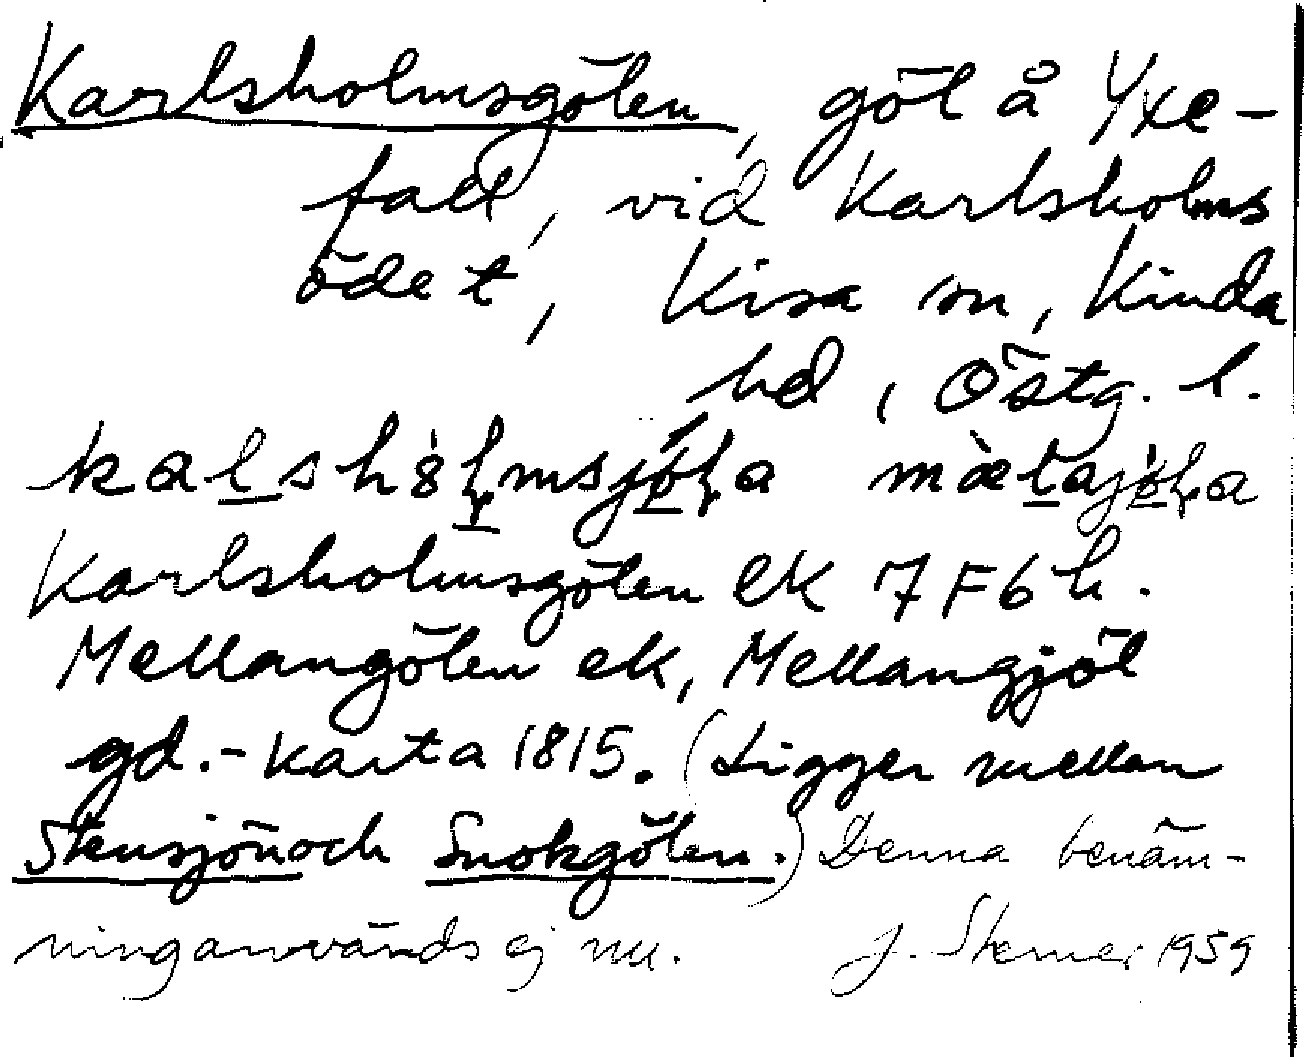 Karlsholmsgölen, göl å Yxe-
fall, vid Karlsholms
ödet, Kisa sn, Kinda
hd, Östg. l.
Karlsholmsgölen ek 7F6h.
Mellangölen ek, Mellangjöl
gd.-karta 1815. (Ligger mellan
Stensjön och Snokgölen.) Denna benäm-
ning används ej nu. J. Sterner 1959